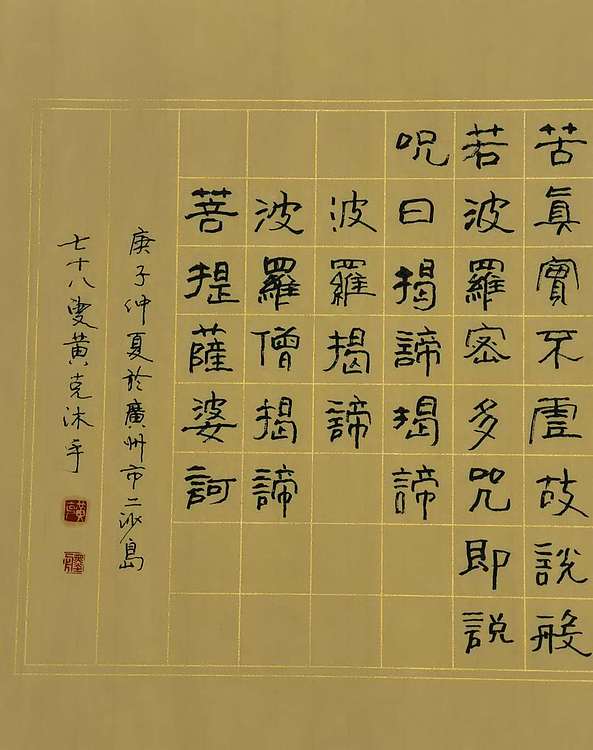 苦真實不虛故說般
若波羅密多咒即説
呪曰揭諦揭諦
波羅揭諦
波羅僧揭諦
菩提薩婆訶
庚子仲夏於廣州市二沙島
七十八叟黄克沐手